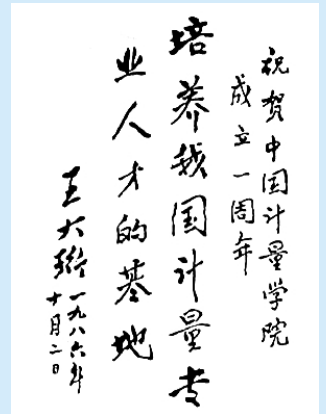 祝贺中国计量学院
成立一周年
培养我国计量专
业人才的基地
王大珩 一九八六年
十月二日